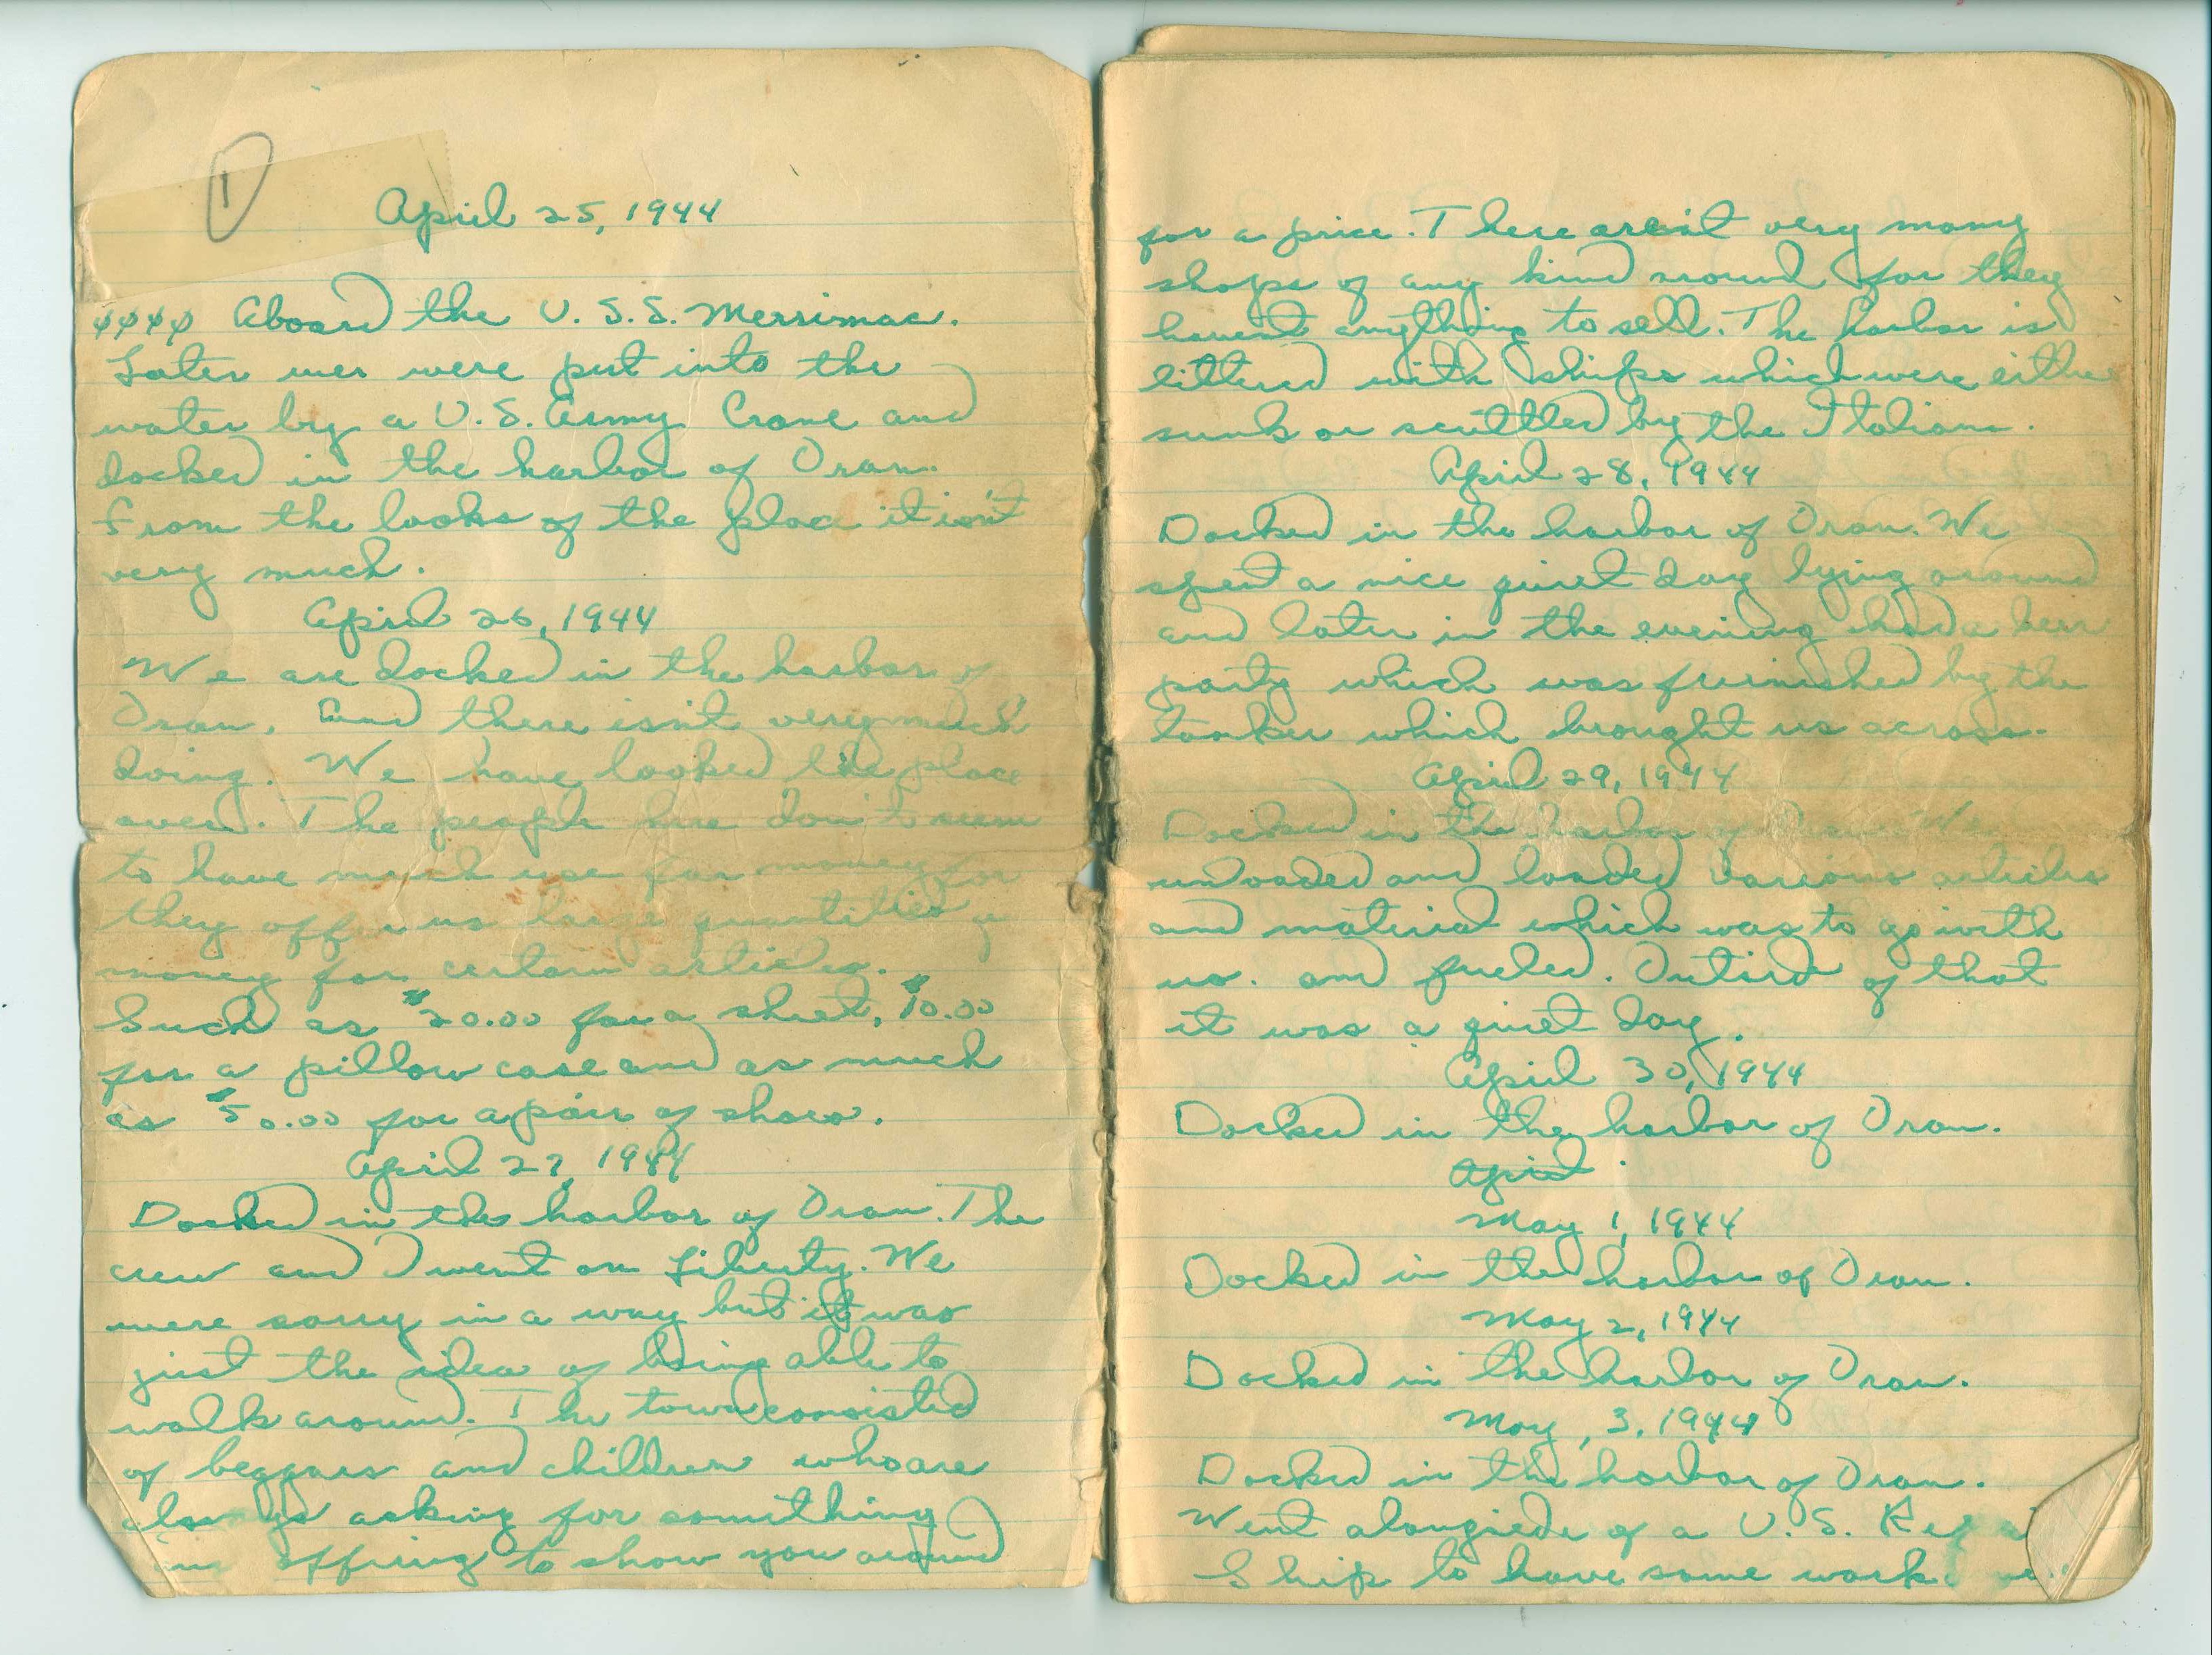 1
April 25, 1944
Aboard the U.S.S. Merrimac.
Later we were put into the
water by a U.S. Army Crane and
docked in the harbor of Oran.
From the looks of the place it isn't
very much.
April 26, 1944
We are docked in the harbor of
Oran. And there isn't very much
doing. We have looked the place
over. The people here don't seem
to have much use for money for
they offer us large quantities of
money for certain articles.
Such as $20.00 for a sheet, $10.00
for a pillow case and as much
as $50.00 for a pair of shoes.
April 27, 1944
Docked in the harbor of Oran. The
crew and I went on Liberty. We
were sorry in a way but it was
just the idea of being able to
walk around. The town consisted
of beggars and children who are
always asking for something
and offring to show you around
for a price. There aren't very many
shops of any kind around for they
havent anything to sell. The harbor is
littered with ships which were either
sunk or scuttled by the Italians.
April 28, 1944
Docked in the harbor of Oran. We
spent a nice quiet day lying around
and later in the evening had a beer
party which was furnished by the
tanker which brought us across.
April 29, 1944
Docked in the harbor of Oran. We
unloaded and loaded various articles
and material which was to go with
us. and fueled. Outside of that
it was a quiet day.
April 30, 1944
Docked in the harbor of Oran.
April
May 1, 1944
Docked in the harbor of Oran.
May 2, 1944
Docked in the harbor of Oran.
May, 3, 1944
Docked in the harbor of Oran.
Went alongside of a U.S.
Ship to have some work